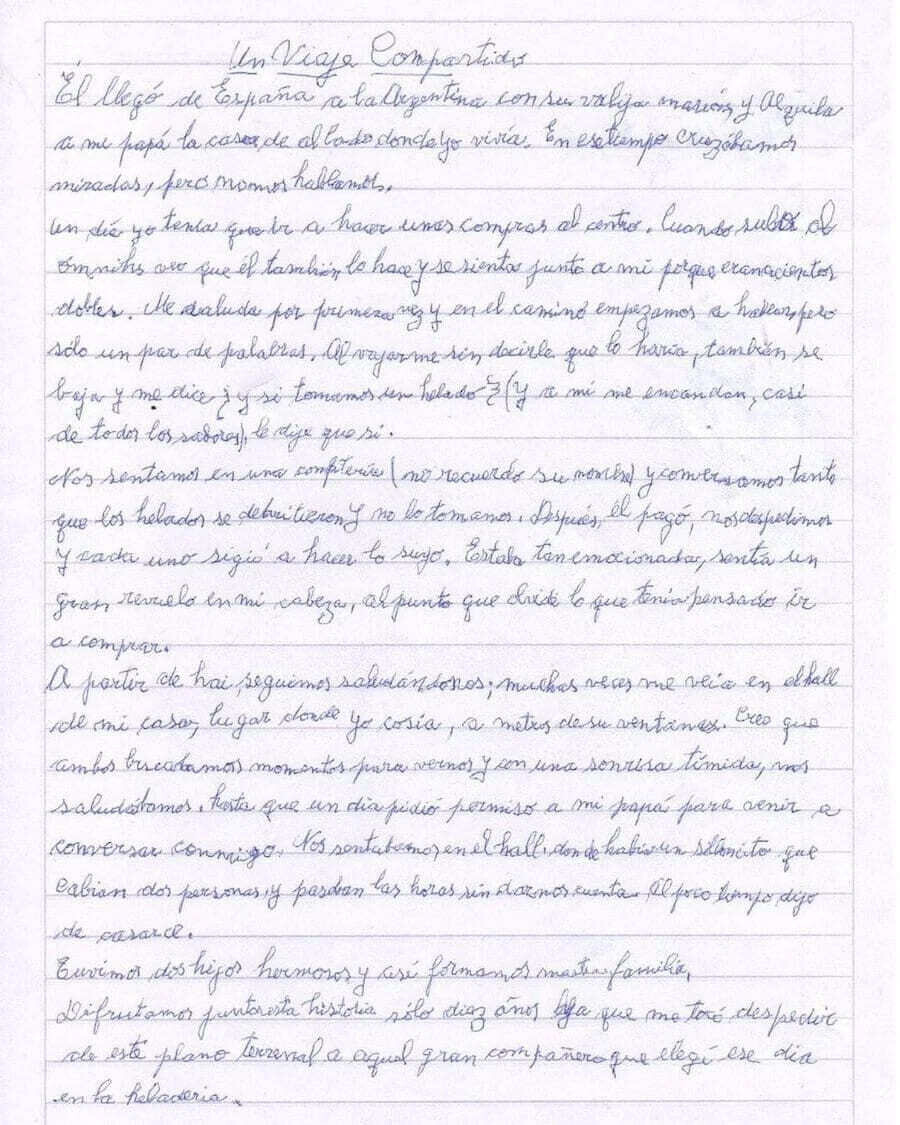 Un Viaje Compartido
Él llegó de España a la Argentina con su valija marrón, y Alquila
a mi papá la casa de al lado donde yo vivía. En ese tiempo cruzábamos
miradas, pero no nos hablamos.
Un día yo tenía que ir a hacer unas compras al centro. Cuando subí al
omnibus veo que él también lo hace y se sienta junto a mi porque eran acientos
dobles. Me saluda por primera vez y en el caminó empezamos a hablar, pero
sólo un par de palabras. Al vajarme sin decirle que lo haría, también se
baja y me dice ¿y si tomamos un helado? (Y a mi me encandan, casi
de todos los sabores), le dije que si.
Nos sentamos en una (no recuerdo su nombre) y conversamos tanto
que los helados se y no lo tomamos. Después, el pagó, nos despedimos
y cada uno sigió a hacer lo suyo. Estaba tan emocionada, sentía un
gran revuelo en mi cabeza, al punto que olvidé lo que tenía pensado ir
a comprar.
A partir de hai seguimos saludándonos; muchas veces me veía en el hall
de mi casa, lugar donde yo cosía, a metros de su ventana. Creo que
ambos buscabamos momentos para vernos y con una sonrisa tímida, nos
saludábamos, hasta que un día pidió permiso a mi papá para venir a
conversar conmigo. Nos sentabamos en el hall, donde había un silloncito que
cabian dos personas, y pasaban las horas sin darnos cuenta. Al poco tiempo dijo
de casarce.
Tuvimos dos hijos hermosos y así formamos nuestra familia.
Difrutamos juntos esta historia sólo diez años que me tocó despedir
de este plano terrenal a aquel gran compañero que elegí ese día
en la heladeria.